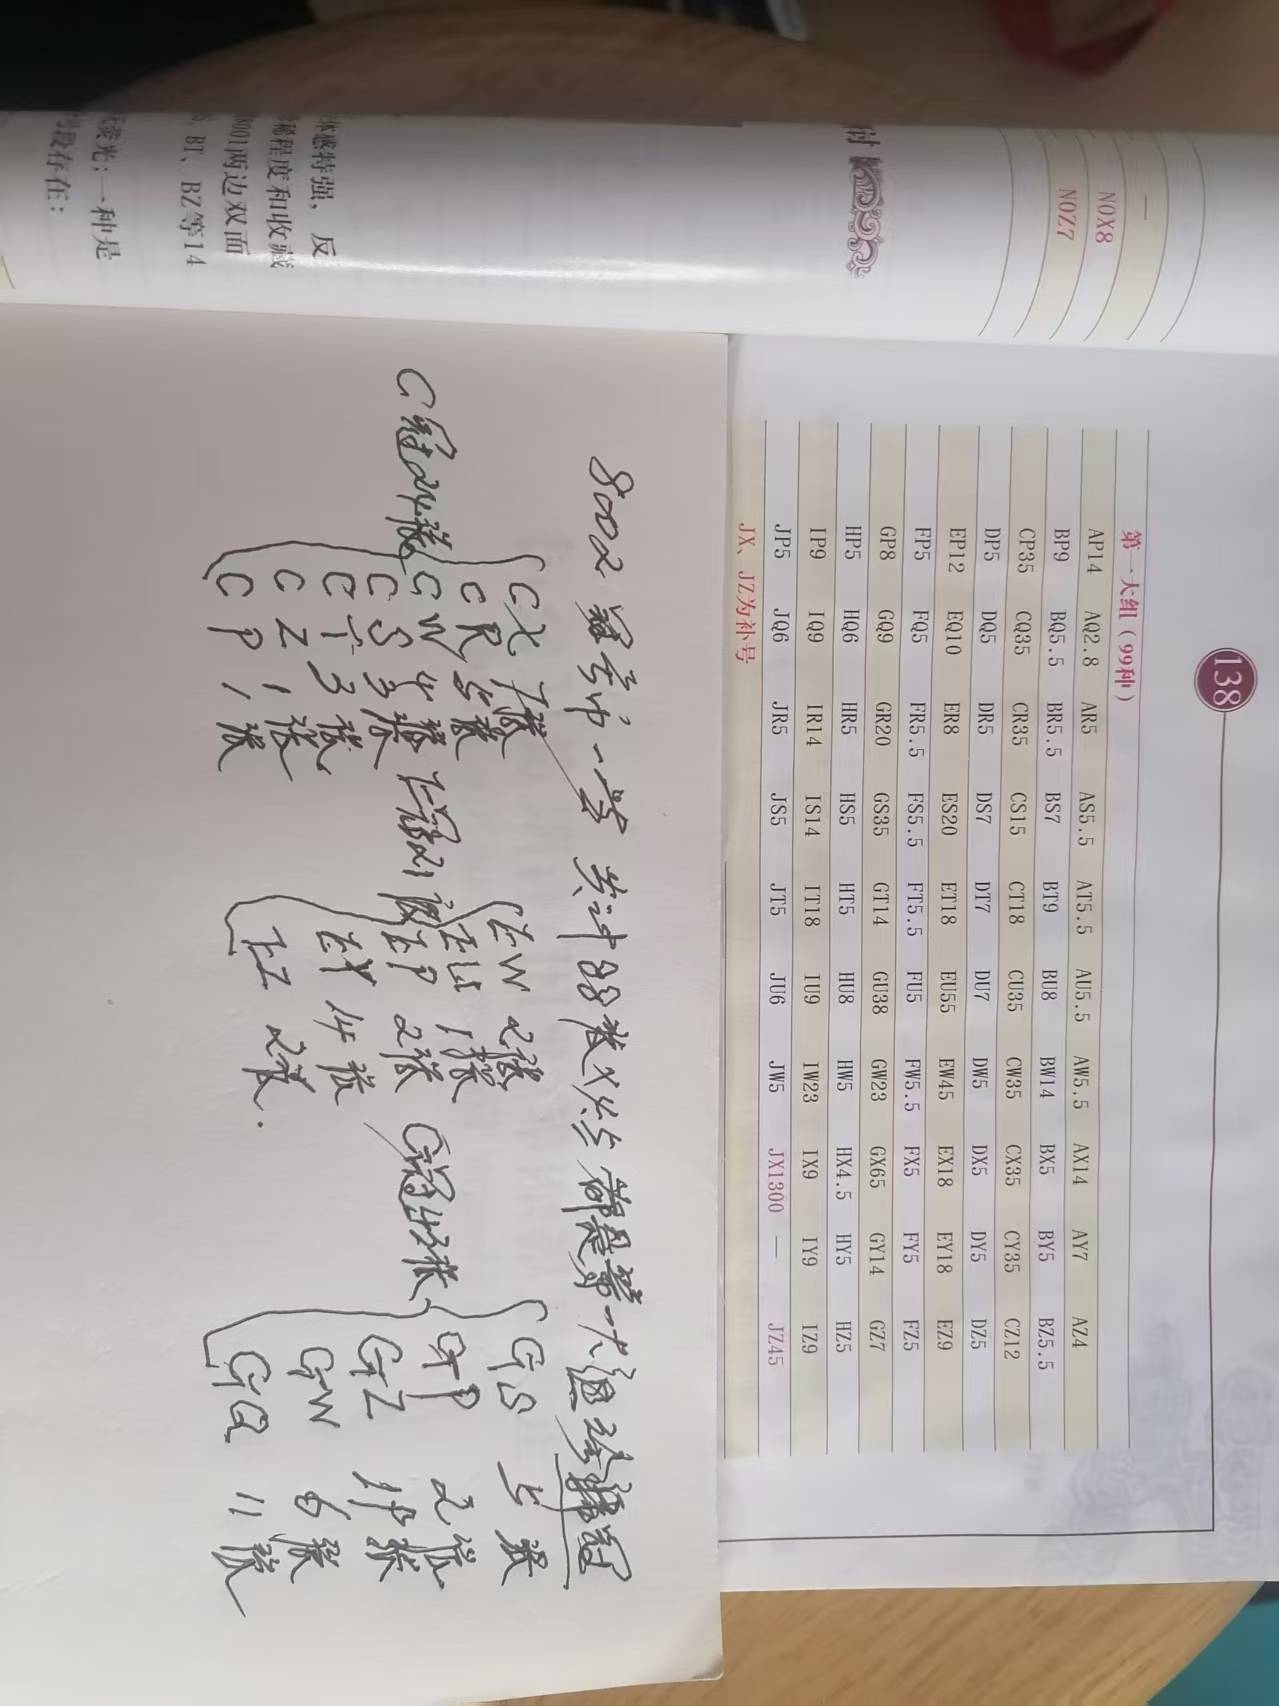 138
第一大组（99种）
AP14 AQ2.8 AR5 AS5.5 AT5.5 AU5.5 AW5.5 AX14 AY7 AZ4
BP9 BQ5.5 BR5.5 BS7 BT9 BU8 BW14 BX5 BY5 BZ5.5
CP35 CQ35 CR35 CS15 CT18 CU35 CW35 CX35 CY35 CZ12
DP5 DQ5 DR5 DS7 DT7 DU7 DW5 DX5 DY5 DZ5
EP12 EQ10 ER8 ES20 ET18 EU55 EW45 EX18 EY18 EZ9
FP5 FQ5 FR5.5 FS5.5 FT5.5 FU5 FW5.5 FX5 FY5 FZ5
GP8 GQ9 GR20 GS35 GT14 GU38 GW23 GX65 GY14 GZ7
HP5 HQ6 HR5 HS5 HT5 HU8 HW5 HX4.5 HY5 HZ5
IP9 IQ9 IR14 IS14 IT18 IU9 IW23 IX9 IY9 IZ9
JP5 JQ6 JR5 JS5 JT5 JU6 JW5 JX1300 — JZ45
JX、JZ为补号
—
NOX8
NOZ7
附
体感特强，反
稀程度和收藏
8001两边双面
、BT、BZ等14
荧光；一种是
号段存在：
8002 一 共计88张 都是第一大组 冠
C冠24张
CX 7张
CR 5张
CW 4张
CS 3张
CT 3张
CZ 1张
CP 1张
E冠21张
EW 2张
EU 1张
EP 2张
EY 14张
EZ 2张.
G冠43张
GS 5张
GP 2张
GZ 19张
GW 6张
GQ 11张